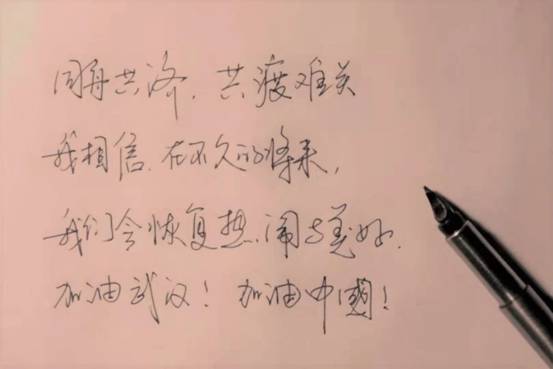 同舟共济.共渡难关
我相信.在不久的将来,
我们会恢复热闹与美好.
加油武汉!加油中國!